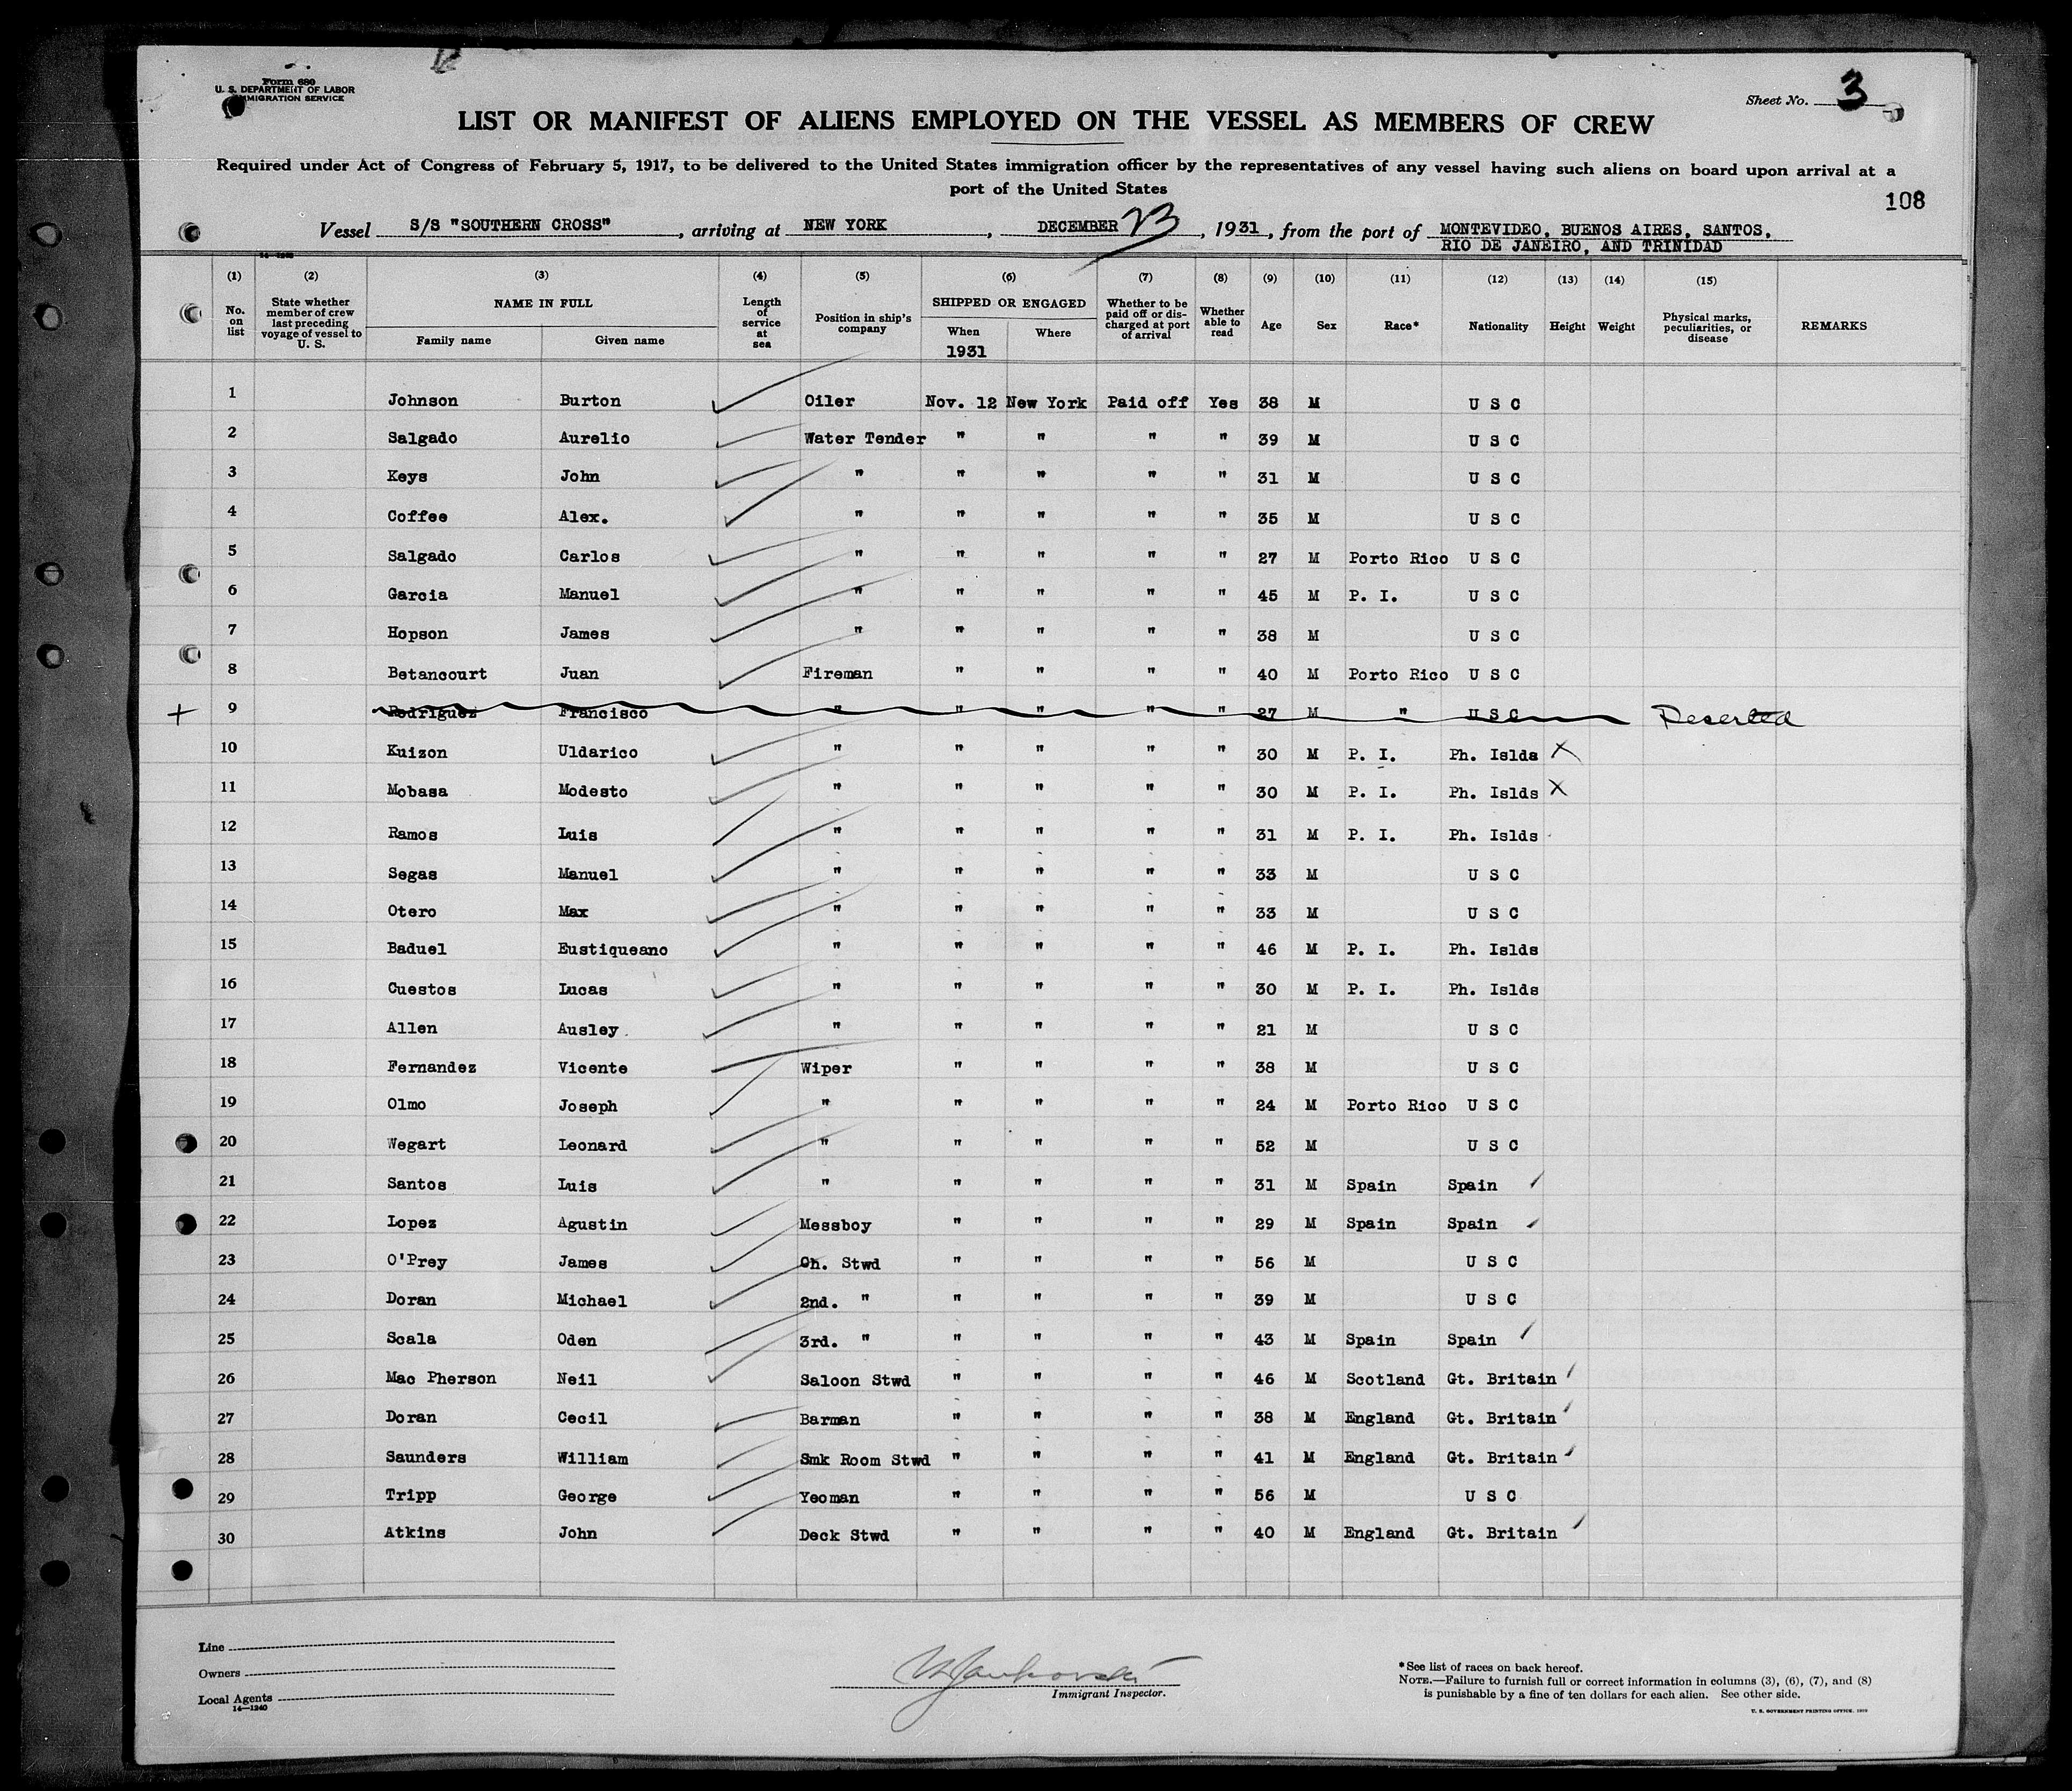 Form 680
U. S. DEPARTMENT OF LABOR
IMMIGRATION SERVICE
Sheet No. 3
LIST OR MANIFEST OF ALIENS EMPLOYED ON THE VESSEL AS MEMBERS OF CREW
Required under Act of Congress of February 5, 1917, to be delivered to the United States immigration officer by the representatives of any vessel having such aliens on board upon arrival at a
port of the United States
108
Vessel S/S "SOUTHERN CROSS", arriving at NEW YORK, DECEMBER 23, 1931, from the port of MONTEVIDEO, BUENOS AIRES, SANTOS,
RIO DE JANEIRO, AND TRINIDAD
(1) (2) (3) (4) (5) (6) (7) (8) (9) (10) (11) (12) (13) (14) (15)
No. on list State whether member of crew last preceding voyage of vessel to U. S. NAME IN FULL Family name Given name Length of service at sea Position in ship's company SHIPPED OR ENGAGED When 1931 Where Whether to be paid off or discharged at port of arrival Whether able to read Age Sex Race* Nationality Height Weight Physical marks, peculiarities, or disease REMARKS
1 Johnson Burton Oiler Nov. 12 New York Paid off Yes 38 M U S C
2 Salgado Aurelio Water Tender " " " " 39 M U S C
3 Keys John " " " " " 31 M U S C
4 Coffee Alex. " " " " " 35 M U S C
5 Salgado Carlos " " " " " 27 M Porto Rico U S C
6 Garcia Manuel " " " " " 45 M P. I. U S C
7 Hopson James " " " " " 38 M U S C
8 Betancourt Juan Fireman " " " " 40 M Porto Rico U S C
+ 9 Rodriguez Francisco " " " " " 27 M " U S C Deserted
10 Kuizon Uldarico " " " " " 30 M P. I. Ph. Islds X
11 Mobasa Modesto " " " " " 30 M P. I. Ph. Islds X
12 Ramos Luis " " " " " 31 M P. I. Ph. Islds
13 Segas Manuel " " " " " 33 M U S C
14 Otero Max " " " " " 33 M U S C
15 Baduel Eustiqueano " " " " " 46 M P. I. Ph. Islds
16 Cuestos Lucas " " " " " 30 M P. I. Ph. Islds
17 Allen Ausley " " " " " 21 M U S C
18 Fernandez Vicente Wiper " " " " 38 M U S C
19 Olmo Joseph " " " " " 24 M Porto Rico U S C
20 Wegart Leonard " " " " " 52 M U S C
21 Santos Luis " " " " " 31 M Spain Spain
22 Lopez Agustin Messboy " " " " 29 M Spain Spain
23 O'Prey James Ch. Stwd " " " " 56 M U S C
24 Doran Michael 2nd. " " " " " 39 M U S C
25 Scala Oden 3rd. " " " " " 43 M Spain Spain
26 Mac Pherson Neil Saloon Stwd " " " " 46 M Scotland Gt. Britain
27 Doran Cecil Barman " " " " 38 M England Gt. Britain
28 Saunders William Smk Room Stwd " " " " 41 M England Gt. Britain
29 Tripp George Yeoman " " " " 56 M U S C
30 Atkins John Deck Stwd " " " " 40 M England Gt. Britain
Line
Owners
Local Agents
14—1240
Immigrant Inspector.
*See list of races on back hereof.
NOTE.—Failure to furnish full or correct information in columns (3), (6), (7), and (8)
is punishable by a fine of ten dollars for each alien. See other side.
U. S. GOVERNMENT PRINTING OFFICE.